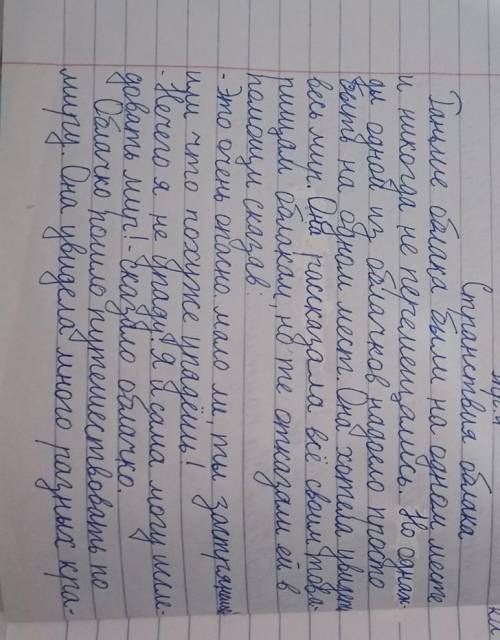 Странствия облака
Раньше облака были на одном месте
и никогда не перемещались. Но однаж-
ды одной из облачков надоело просто
быть на одном мест. Она хотела увидеть
весь мир. Она рассказала всё своим това-
рищам облакам, но те отказали ей в
помощи сказав:
- Это очень опасно мало ли, ты застрянешь
или что похуже упадёшь!
- Ничего я не упаду! Я сама могу иссле-
довать мир! - сказало облачко.
Облачко пошло путешествовать по
миру. Она увидела много разных кра-